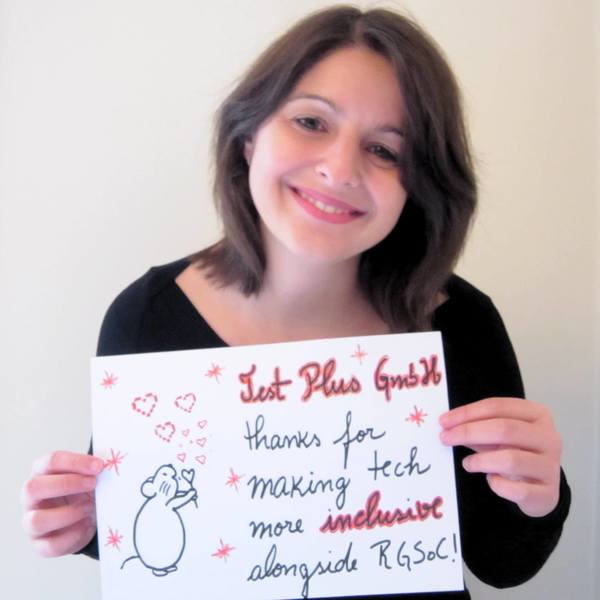 Test Plus GmbH
thanks for
making tech
more inclusive
alongside RGSoC!